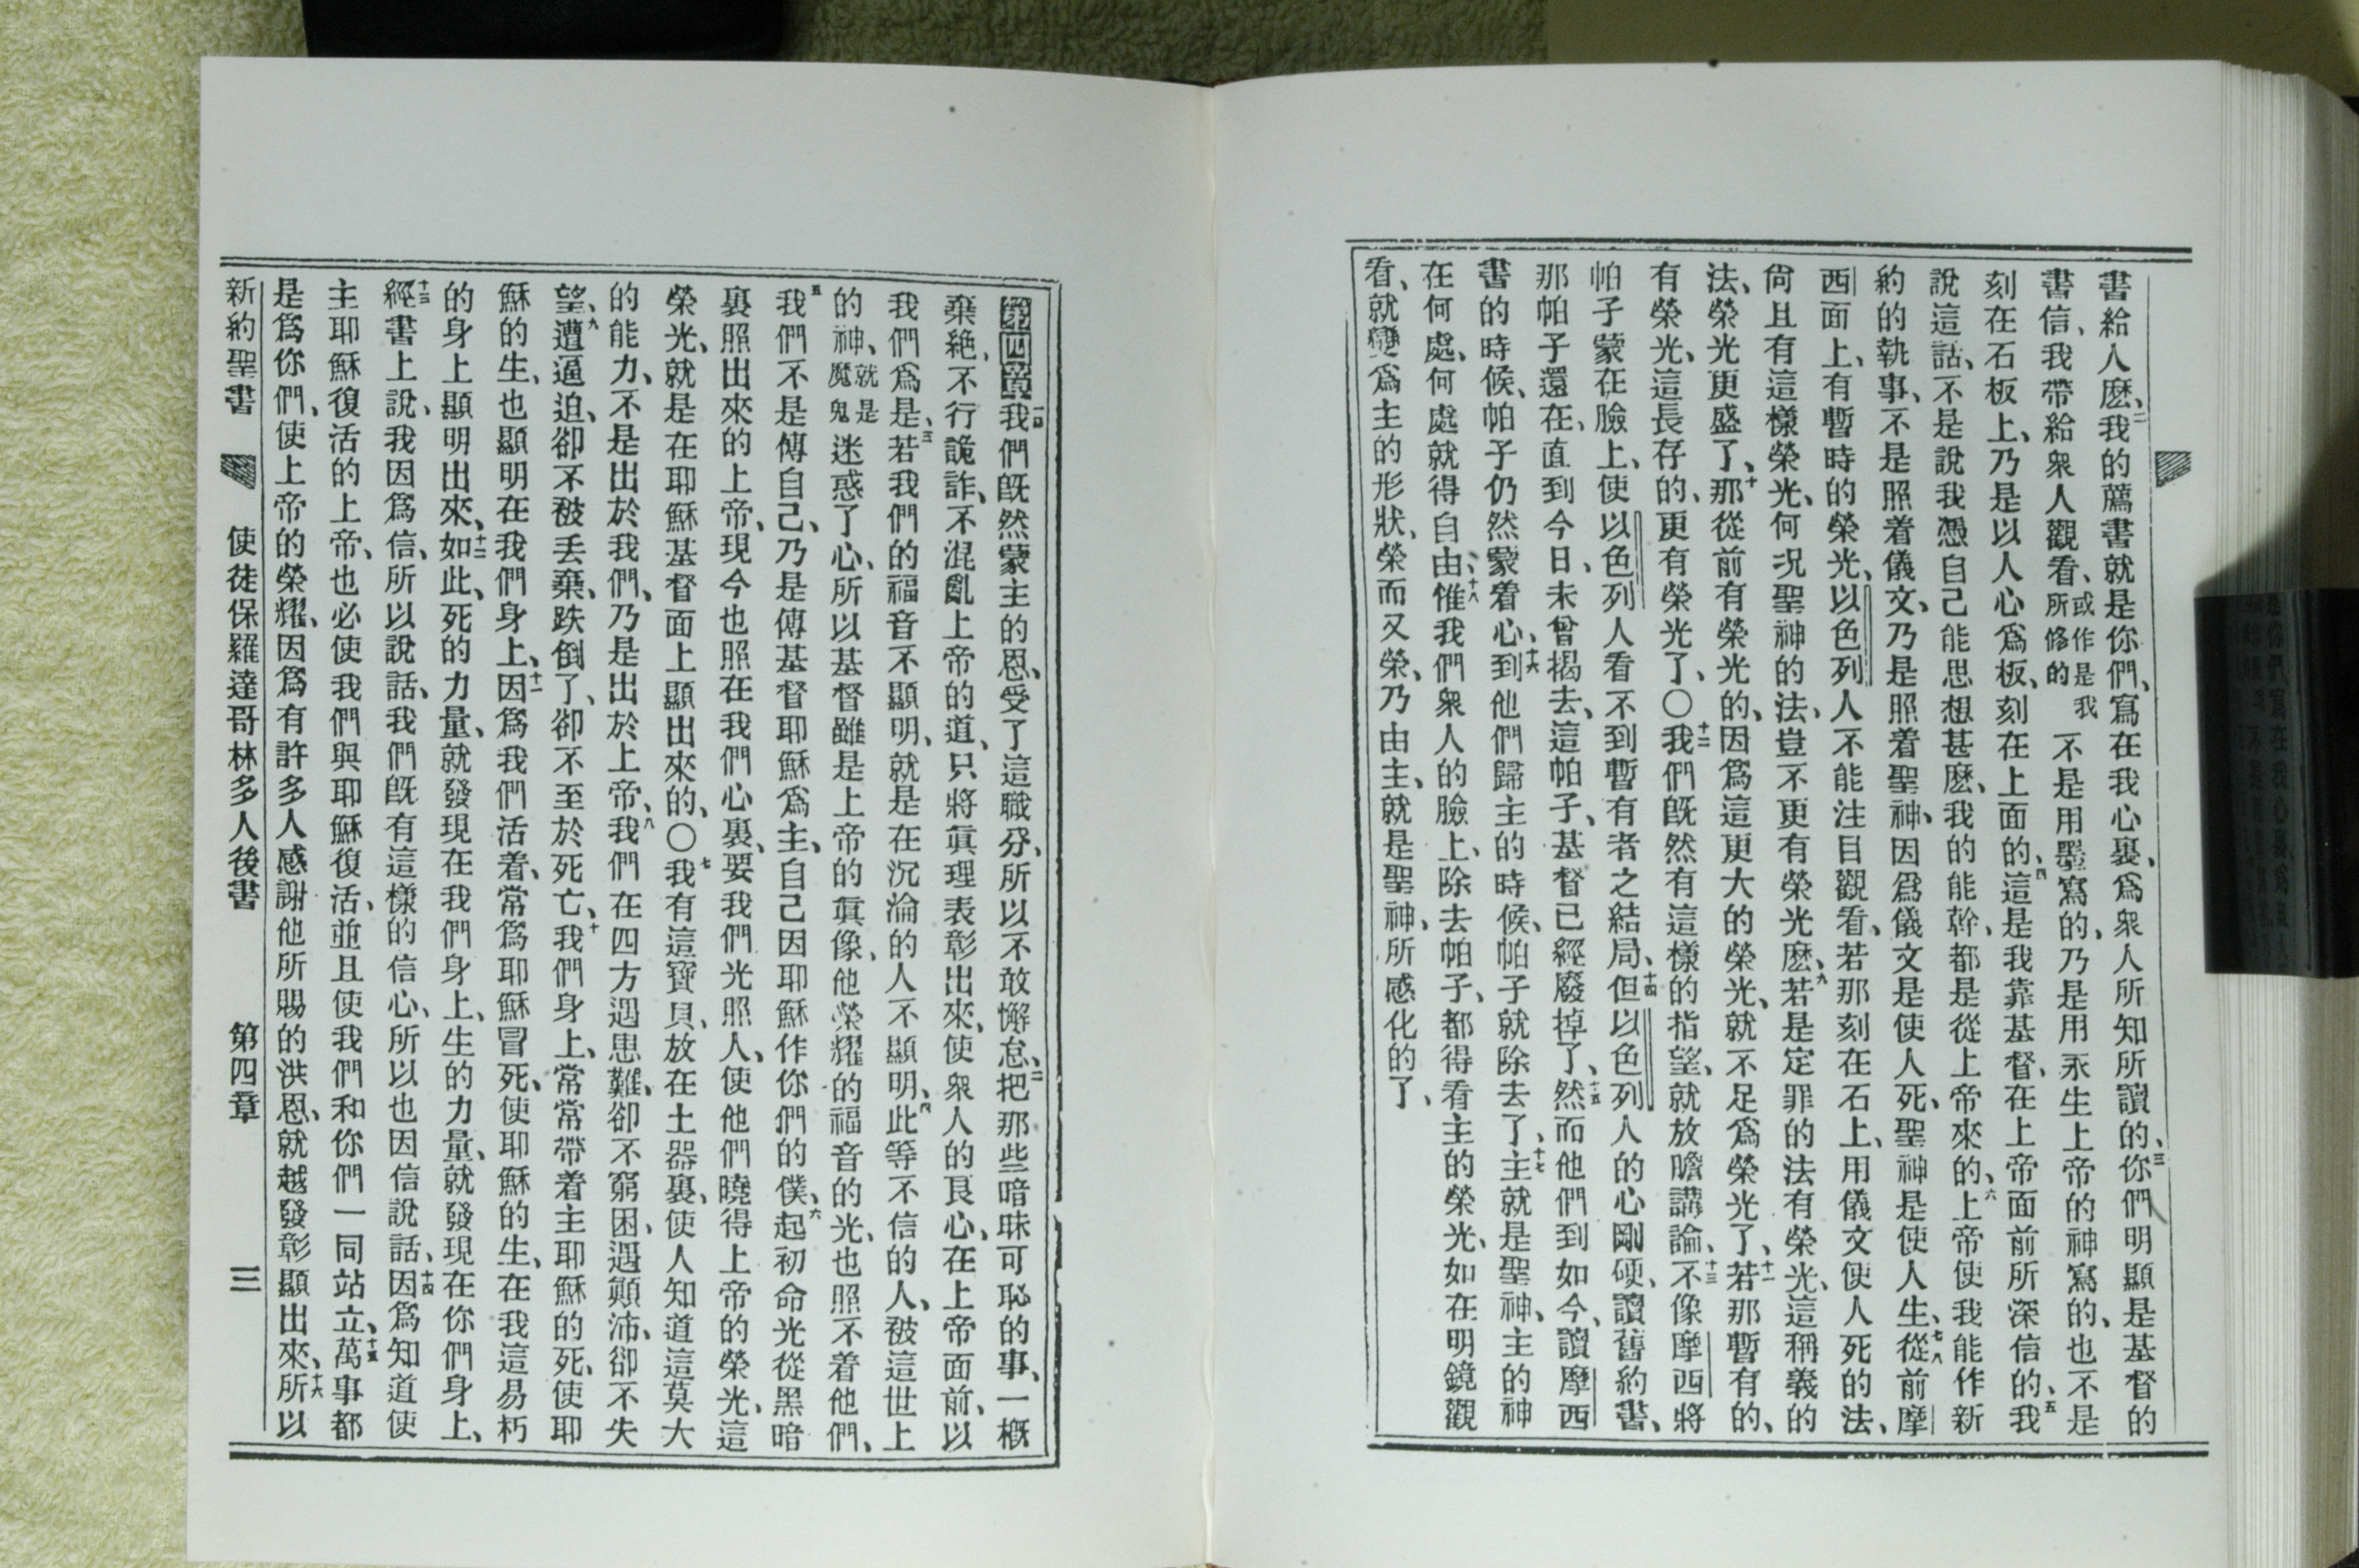 書給人麽、二我的薦書就是你們、寫在我心裏、爲衆人所知所讀的、三你們明顯是基督的
書信、我帶給衆人觀看、或作是我所修的不是用墨寫的、乃是用永生上帝的神寫的、也不是
刻在石板上、乃是以人心爲板、刻在上面的、四這是我靠基督、在上帝面前所深信的、五我
說這話、不是說我憑自己能思想甚麽、我的能幹、都是從上帝來的、六上帝使我能作新
約的執事、不是照着儀文、乃是照着聖神、因爲儀文是使人死、聖神是使人生、七八從前摩
西面上、有暫時的榮光、以色列人不能注目觀看、若那刻在石上、用儀文使人死的法、
尙且有這樣榮光、何况聖神的法、豈不更有榮光麽、九若是定罪的法有榮光、這稱義的
法、榮光更盛了、十那從前有榮光的、因爲這更大的榮光、就不足爲榮光了、十一若那暫有的、
有榮光、這長存的、更有榮光了、〇十二我們旣然有這樣的指望、就放膽講論、十三不像摩西將
帕子蒙在臉上、使以色列人看不到暫有者之結局、十四但以色列人的心剛硬、讀舊約書、
那帕子還在、直到今日、未曾揭去、這帕子、基督已經廢掉了、十五然而他們到如今、讀摩西
書的時候、帕子仍然蒙着心、十六到他們歸主的時候、帕子就除去了、十七主就是聖神、主的神
在何處、何處就得自由、十八惟我們衆人的臉上、除去帕子、都得看主的榮光、如在明鏡觀
看、就變爲主的形狀、榮而又榮、乃由主、就是聖神、所感化的了、
第四章一我們旣然蒙主的恩、受了這職分、所以不敢懈怠、二把那些暗昧可恥的事、一槪
棄絕、不行詭詐、不混亂上帝的道、只將眞理表彰出來、使衆人的良心、在上帝面前、以
我們爲是、三若我們的福音不顯明、就是在沉淪的人不顯明、四此等不信的人、被這世上
的神、就是魔鬼迷惑了心、所以基督雖是上帝的眞像、他榮耀的福音的光、也照不着他們、
五我們不是傳自己、乃是傳基督耶穌爲主、自己因耶穌作你們的僕、六起初命光從黑暗
裏照出來的上帝、現今也照在我們心裏、要我們光照人、使他們曉得上帝的榮光、這
榮光、就是在耶穌基督面上顯出來的、〇七我有這寶貝、放在土器裏、使人知道這莫大
的能力、不是出於我們、乃是出於上帝、八我們在四方遇患難、卻不窮困、遇顚沛、卻不失
望、九遭逼迫、卻不被丢棄、跌倒了、卻不至於死亡、十我們身上、常常帶着主耶穌的死、使耶
穌的生、也顯明在我們身上、十一因爲我們活着、常爲耶穌冒死、使耶穌的生、在我這易朽
的身上顯明出來、十二如此、死的力量、就發現在我們身上、生的力量、就發現在你們身上、
十三經書上說、我因爲信、所以說話、我們旣有這樣的信心、所以也因信說話、十四因爲知道使
主耶穌復活的上帝、也必使我們與耶穌復活、並且使我們和你們一同站立、十五萬事都
是爲你們、使上帝的榮耀、因爲有許多人感謝他所賜的洪恩、就越發彰顯出來、十六所以
新約聖書 使徒保羅達哥林多人後書 第四章 三